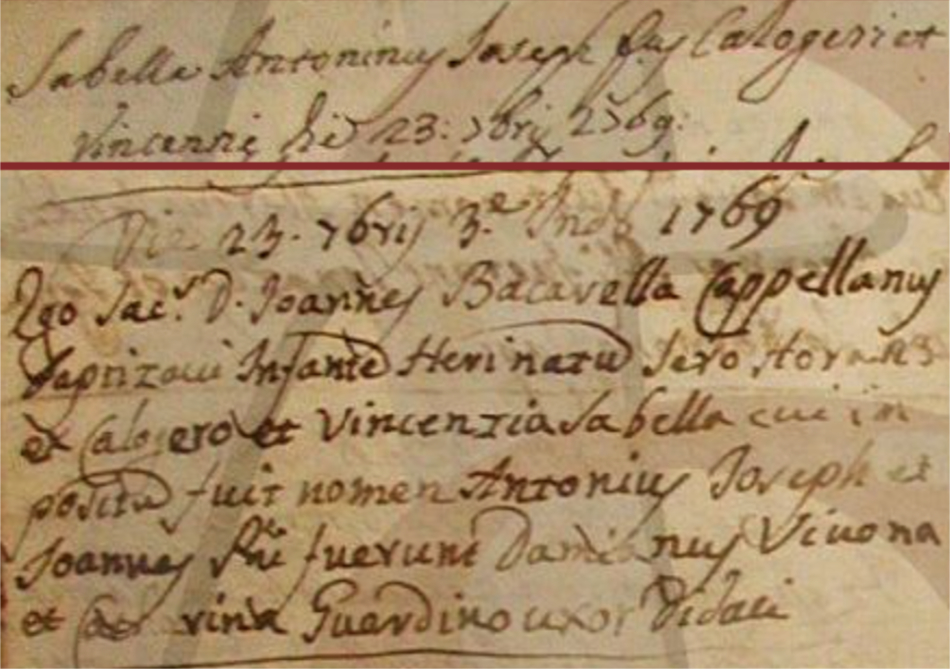 Sabella Antoninus Joseph fius Calogeri et
Vincennię die 23: 7brij 1769:
Die 23. 7brij 3.ᵉ Indⁿ 1769
Ego Sac.ˢ D. Joannes Bacavella Cappellanus
baptizavi Infantē Heri natū sero hora n3
ex Calogero et Vincenzia Sabella cui im
positū fuit nomen Antonius Joseph et
Joannes PPⁿⁱ fuerunt Damianus Vivona
et Catarina Guardino uxor Didaci